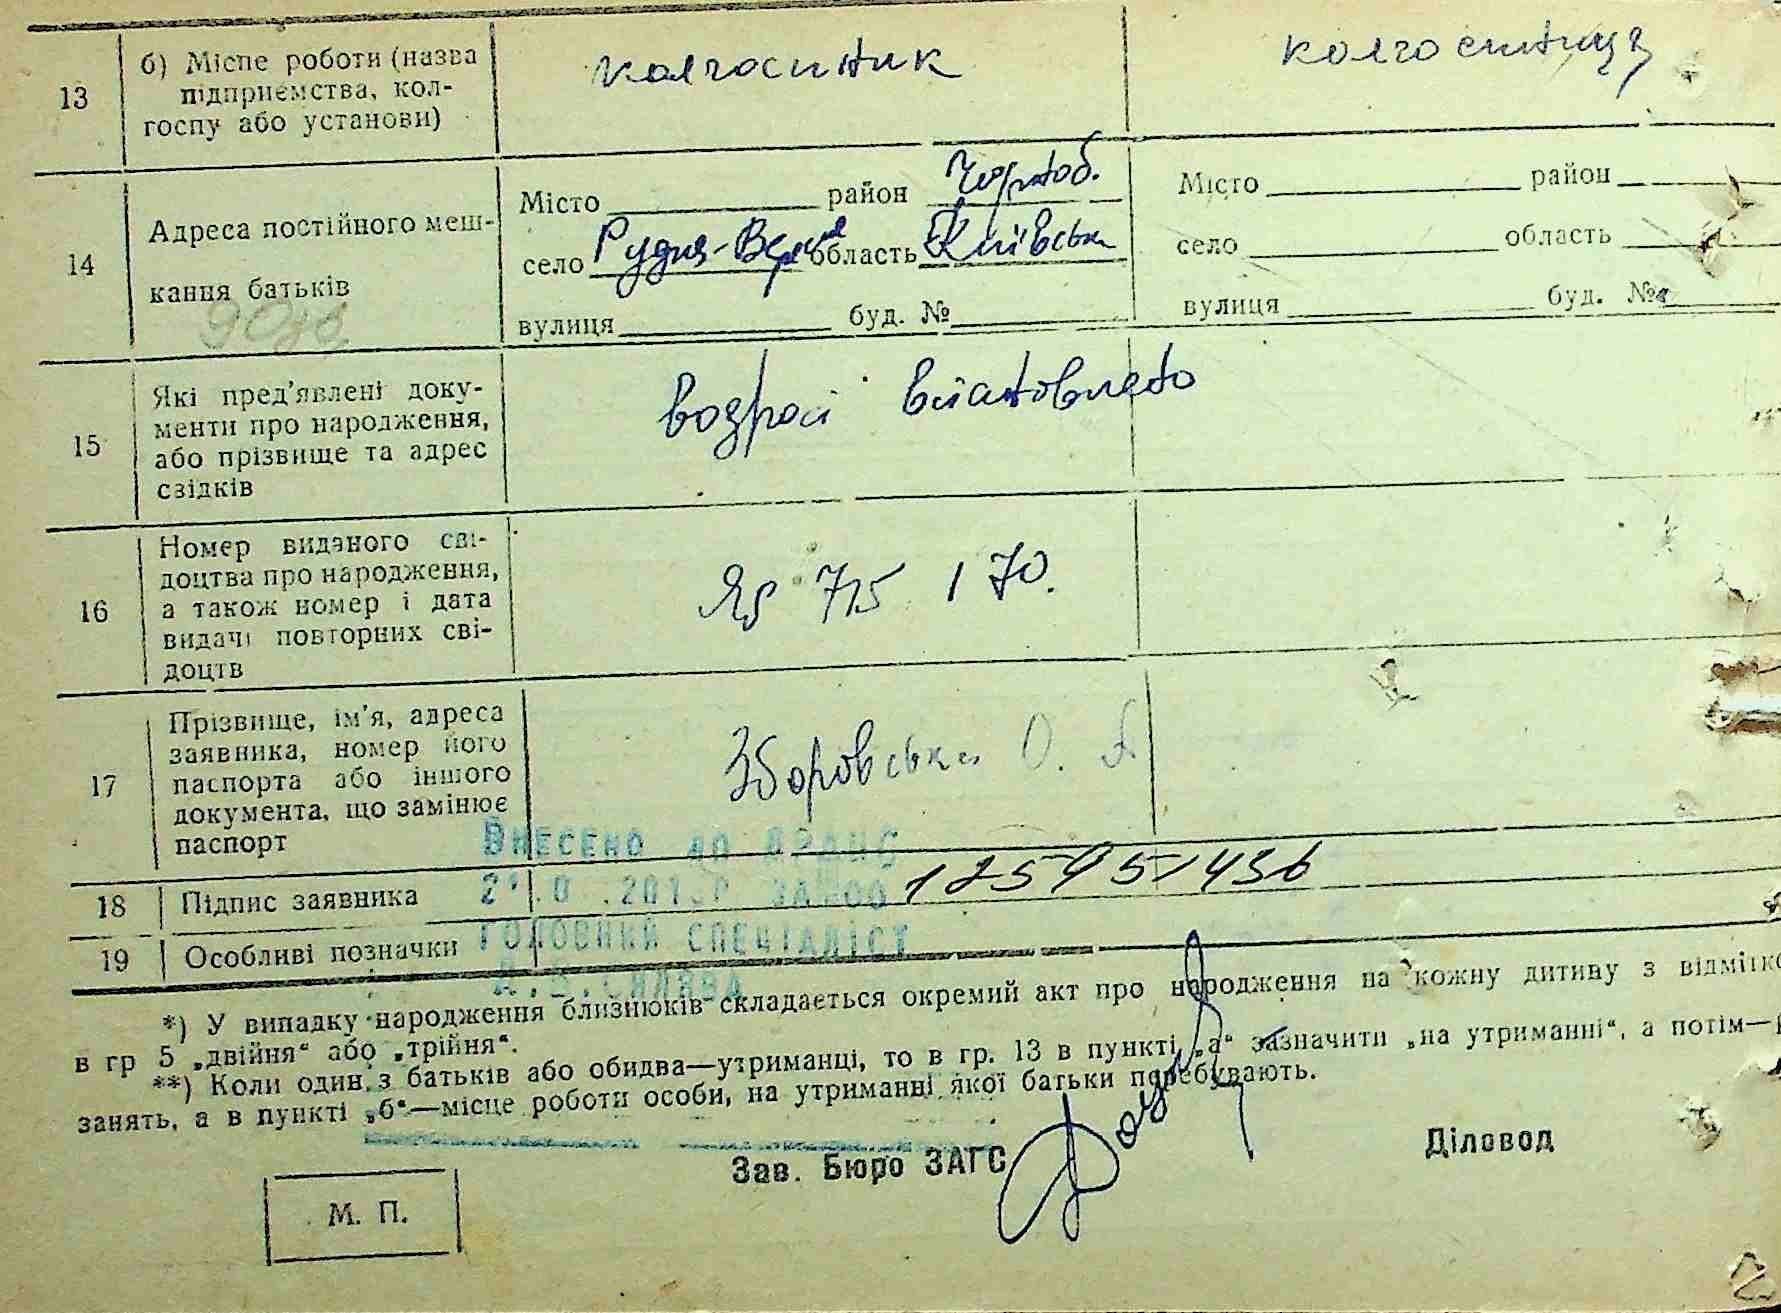 13
б) Місце роботи (назва
підприємства, кол-
госпу або установи)
колгоспник
колгоспниця
14
Адреса постійного меш-
кання батьків
Місто район Чорноб.
село Рудня-Вересня область Київська
вулиця буд. №
Місто район
село область
вулиця буд. №
15
Які пред'явлені доку-
менти про народження,
або прізвище та адрес
свідків
возраст
16
Номер виданого сві-
доцтва про народження,
а також номер і дата
видачі повторних сві-
доцтв
715 170.
17
Прізвище, ім'я, адреса
заявника, номер його
паспорта або іншого
документа, що замінює
паспорт
Зборовська О.
Внесено до ДРАЦС
18
Підпис заявника
19
Особливі позначки
головний спеціаліст
*) У випадку народження близнюків складається окремий акт про народження на кожну дитину з відмітко
в гр 5 „двійня“ або „трійня“.
**) Коли один з батьків або обидва—утриманці, то в гр. 13 в пункті „а“ зазначити „на утриманні“, а потім—
занять, а в пункті „б“—місце роботи особи, на утриманні якої батьки перебувають.
Зав. Бюро ЗАГС
Діловод
М. П.